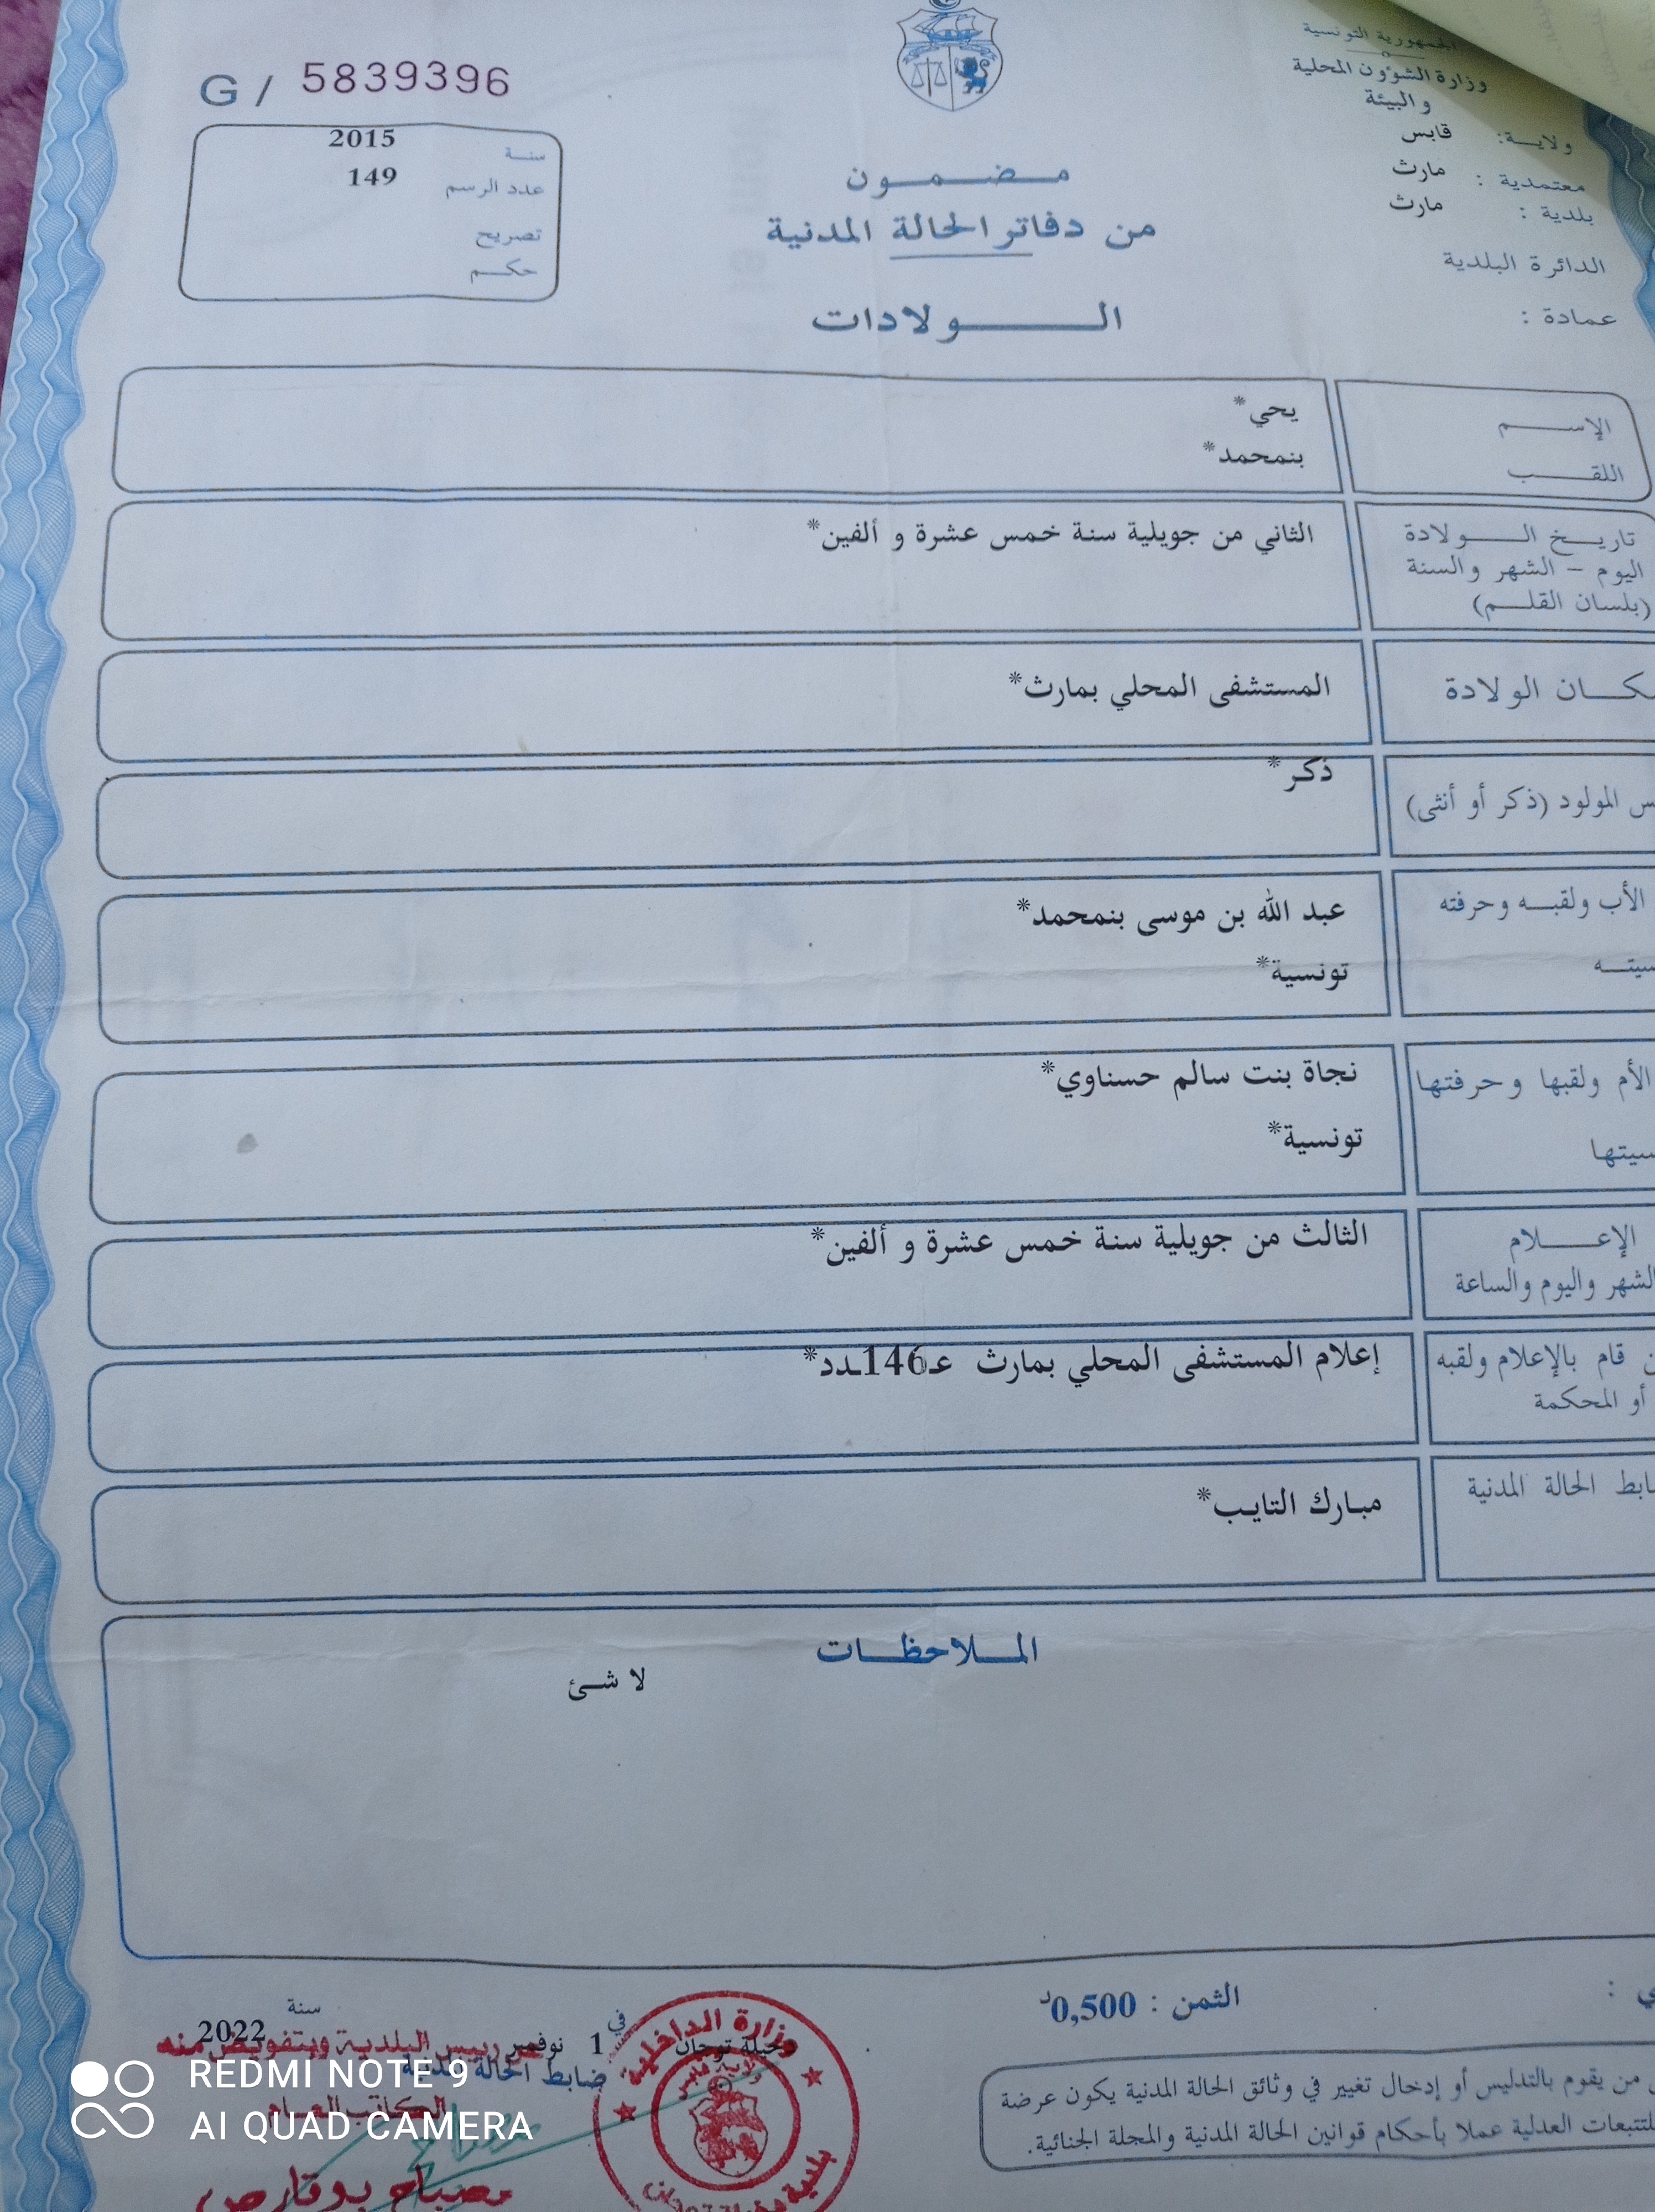 الجمهورية التونسية
وزارة الشؤون المحلية
والبيئة
ولاية: قابس
معتمدية : مارث
بلدية : مارث
الدائرة البلدية
عمادة :
G / 5839396
سنة 2015
عدد الرسم 149
تصريح
حكم
مضمون
من دفاتر الحالة المدنية
الولادات
الإسم يحي*
اللقب بنمحمد*
تاريخ الولادة الثاني من جويلية سنة خمس عشرة و ألفين*
اليوم - الشهر والسنة
(بلسان القلم)
الولادة المستشفى المحلي بمارث*
ذكر*
المولود (ذكر أو أنثى)
الأب ولقبه وحرفته عبد الله بن موسى بنمحمد*
تونسية*
الأم ولقبها وحرفتها نجاة بنت سالم حسناوي*
تونسية*
الإعلام الثالث من جويلية سنة خمس عشرة و ألفين*
الشهر واليوم والساعة
قام بالإعلام ولقبه إعلام المستشفى المحلي بمارث عـ146ـدد*
أو المحكمة
الحالة المدنية مبارك التايب*
الملاحظات
لا شئ
الثمن : 0,500د
في 1 نوفمبر سنة 2022
رئيس البلدية وبتفويض منه
ضابط الحالة المدنية
الكاتب العام
مصباح بوقارص
وزارة الداخلية
من يقوم بالتدليس أو إدخال تغيير في وثائق الحالة المدنية يكون عرضة
للتتبعات العدلية عملا بأحكام قوانين الحالة المدنية والمجلة الجنائية.
REDMI NOTE 9
AI QUAD CAMERA